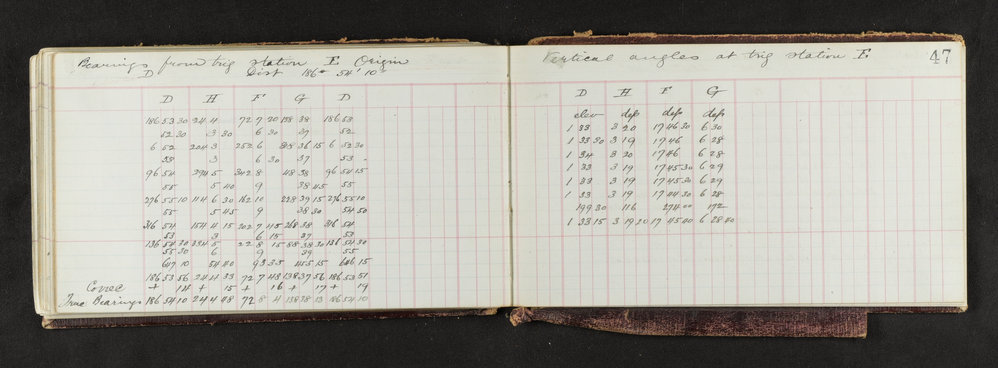 Bearings from trig station E Origin
D Dist 186° 54' 10"
D H F G D
186 53 30 244 4 72 7 20 138 38 186 53
52 30 3 30 6 30 37 52
6 52 204 3 252 6 36 15 6 52 30
53 3 6 30 37 53
96 54 294 5 342 8 48 38 96 54 15
55 5 40 9 38 45 55
276 55 10 114 6 30 162 10 228 39 15 276 55 10
55 5 45 9 38 30 54 50
316 54 154 4 15 202 7 45 268 38 316 54
53 3 6 15 37 53
136 54 30 334 5 22 8 15 88 38 30 136 54 30
55 30 6 9 39 55
647 10 54 40 93 35 455 15 646 15
186 53 56 244 4 33 72 7 48 138 37 56 186 53 51
Correc + 14 + 15 + 16 + 17 + 19
True Bearings 186 54 10 244 4 48 72 8 4 138 38 13 186 54 10
Vertical angles at trig station E
47
D H F G
elev deps deps deps
1 33 3 20 17 46 30 6 30
1 33 30 3 19 17 46 6 28
1 34 3 20 17 46 6 28
1 33 3 19 17 45 30 6 29
1 33 3 19 17 45 30 6 29
1 33 3 19 17 44 30 6 28
199 30 116 274 00 172
1 33 15 3 19 20 17 45 00 6 28 40